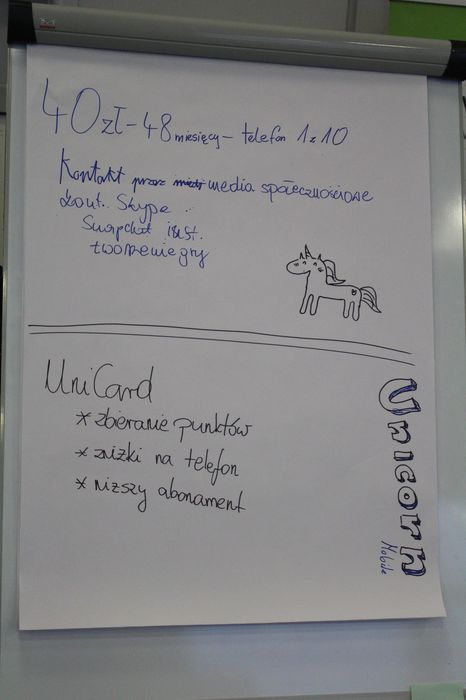 40 zł - 48 miesięcy - telefon 1 z 10
Kontakt przez media społecznościowe
Skype
Snapchat inst.
tworzenie gry
UniCard
* zbieranie punktów
* zniżki na telefon
* niższy abonament
Unicorn
Mobile